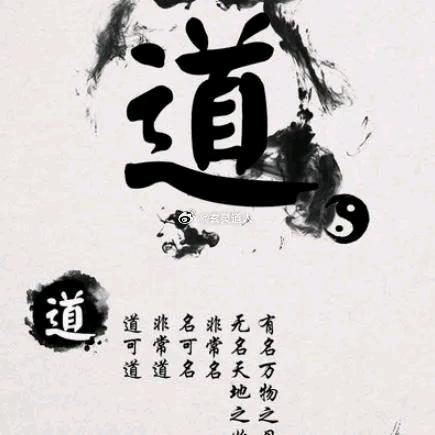 道
道
道可道
非常道
名可名
非常名
无名天地之
有名万物之